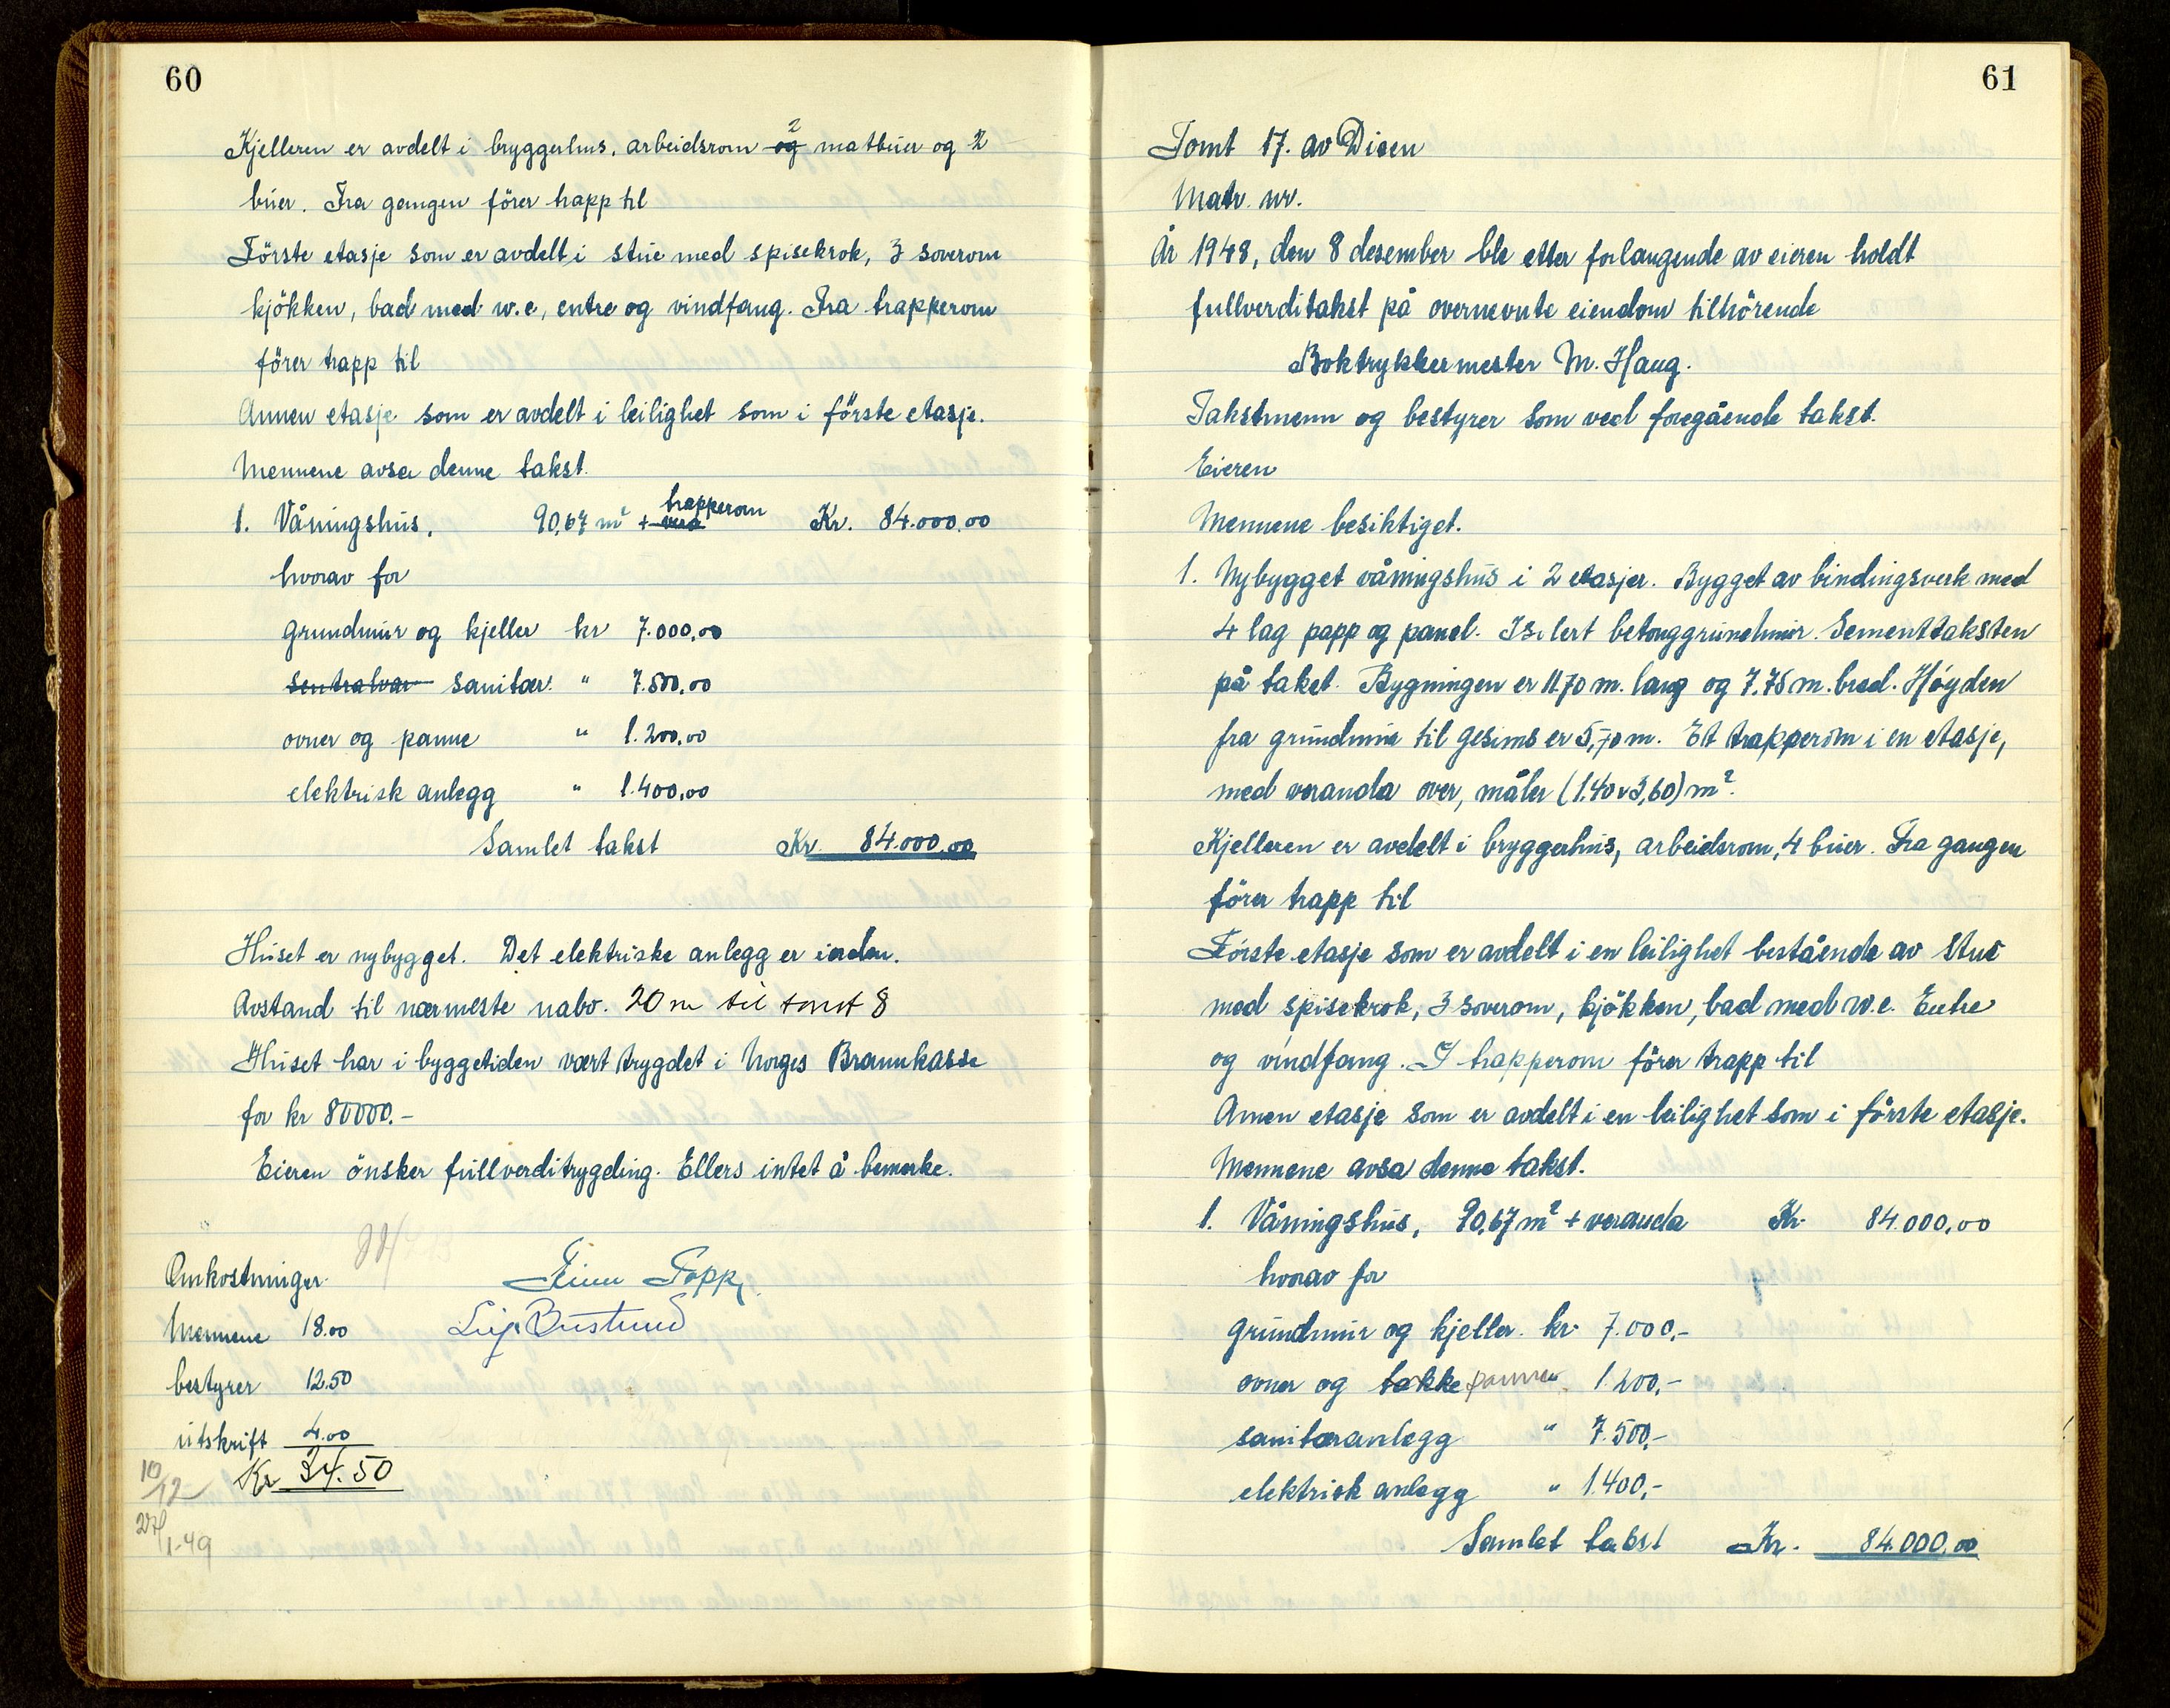 60
Kjelleren er avdelt i bryggerhus, arbeidsrom og 2 matbuer og 2
buer. Fra gangen fører trapp til
Første etasje som er avdelt i stue med spisekrok, 3 soverom
kjøkken, bad med w.c, entre og vindfang. Fra trapperom
fører trapp til
Annen etasje som er avdelt i leilighet som i første etasje.
Mennene avsa denne takst.
1. Våningshus, 90,67 m² + vera trapperom Kr. 84.000.00
hvorav for
grundmur og kjeller kr 7.000,00
Sentralvar sanitær. " 7.500,00
ovner og panne " 1.200,00
elektrisk anlegg " 1.400,00
Samlet takst Kr. 84.000,00
Huset er nybygget. Det elektriske anlegg er i orden.
Avstand til nærmeste nabo. 20 m til tomt 8
Huset har i byggetiden vært trygdet i Norges Brannkasse
for kr 80000.-
Eieren ønsker fullverditrygding. Ellers intet å bemerke.
Omkostninger
Mennene 18.00
bestyrer 12.50
utskrift 4.00
Kr 34.50
10/12
27/1-49
Finn Popp
61
Tomt 17. av Disen
Matr. nr.
År 1948, den 8 desember ble etter forlangende av eieren holdt
fullverditakst på overnevnte eiendom tilhørende
Boktrykkermester M. Haug.
Takstmenn og bestyrer som ved foregående takst.
Eieren
Mennene besiktiget.
1. Nybygget våningshus i 2 etasjer. Bygget av bindingsverk med
4 lag papp og panel. Isolert betonggrunnmur. Sementtaksten
på taket. Bygningen er 11.70 m. lang og 7.75 m. bred. Høyden
fra grundmur til gesims er 5,70 m. Et trapperom i en etasje,
med veranda over, måler (1.40 x 3,60) m².
Kjelleren er avdelt i bryggerhus, arbeidsrom, 4 buer. Fra gangen
fører trapp til
Første etasje som er avdelt i en leilighet bestående av stue
med spisekrok, 3 soverom, kjøkken, bad med w.c. Entre
og vindfang. I trapperom fører trapp til
Annen etasje som er avdelt i en leilighet som i første etasje.
Mennene avsa denne takst.
1. Våningshus, 90,67 m² + veranda Kr. 84.000,00
hvorav for
grundmur og kjeller. kr. 7.000,-
ovner og takke panne " 1.200,-
sanitæranlegg " 7.500,-
elektrisk anlegg " 1.400,-
Samlet takst Kr. 84.000,00